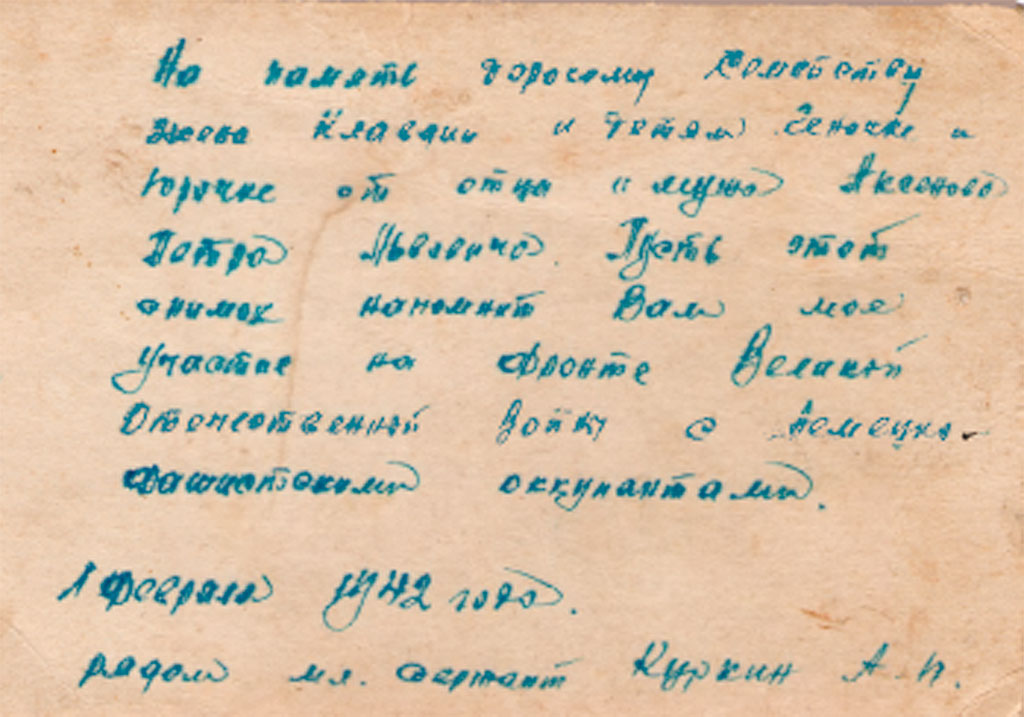 На память дорогому Семейству
жене Клавдии и детям Геночке и
Юрочке от отца и мужа Аксенова
Петра Львовича. Пусть этот
снимок напомнит Вам мое
участие на фронте Великой
Отечественной Войны с Немецко-
фашистскими оккупантами.
1 февраля 1942 года.
рядом мл. сержант Куркин А. П.